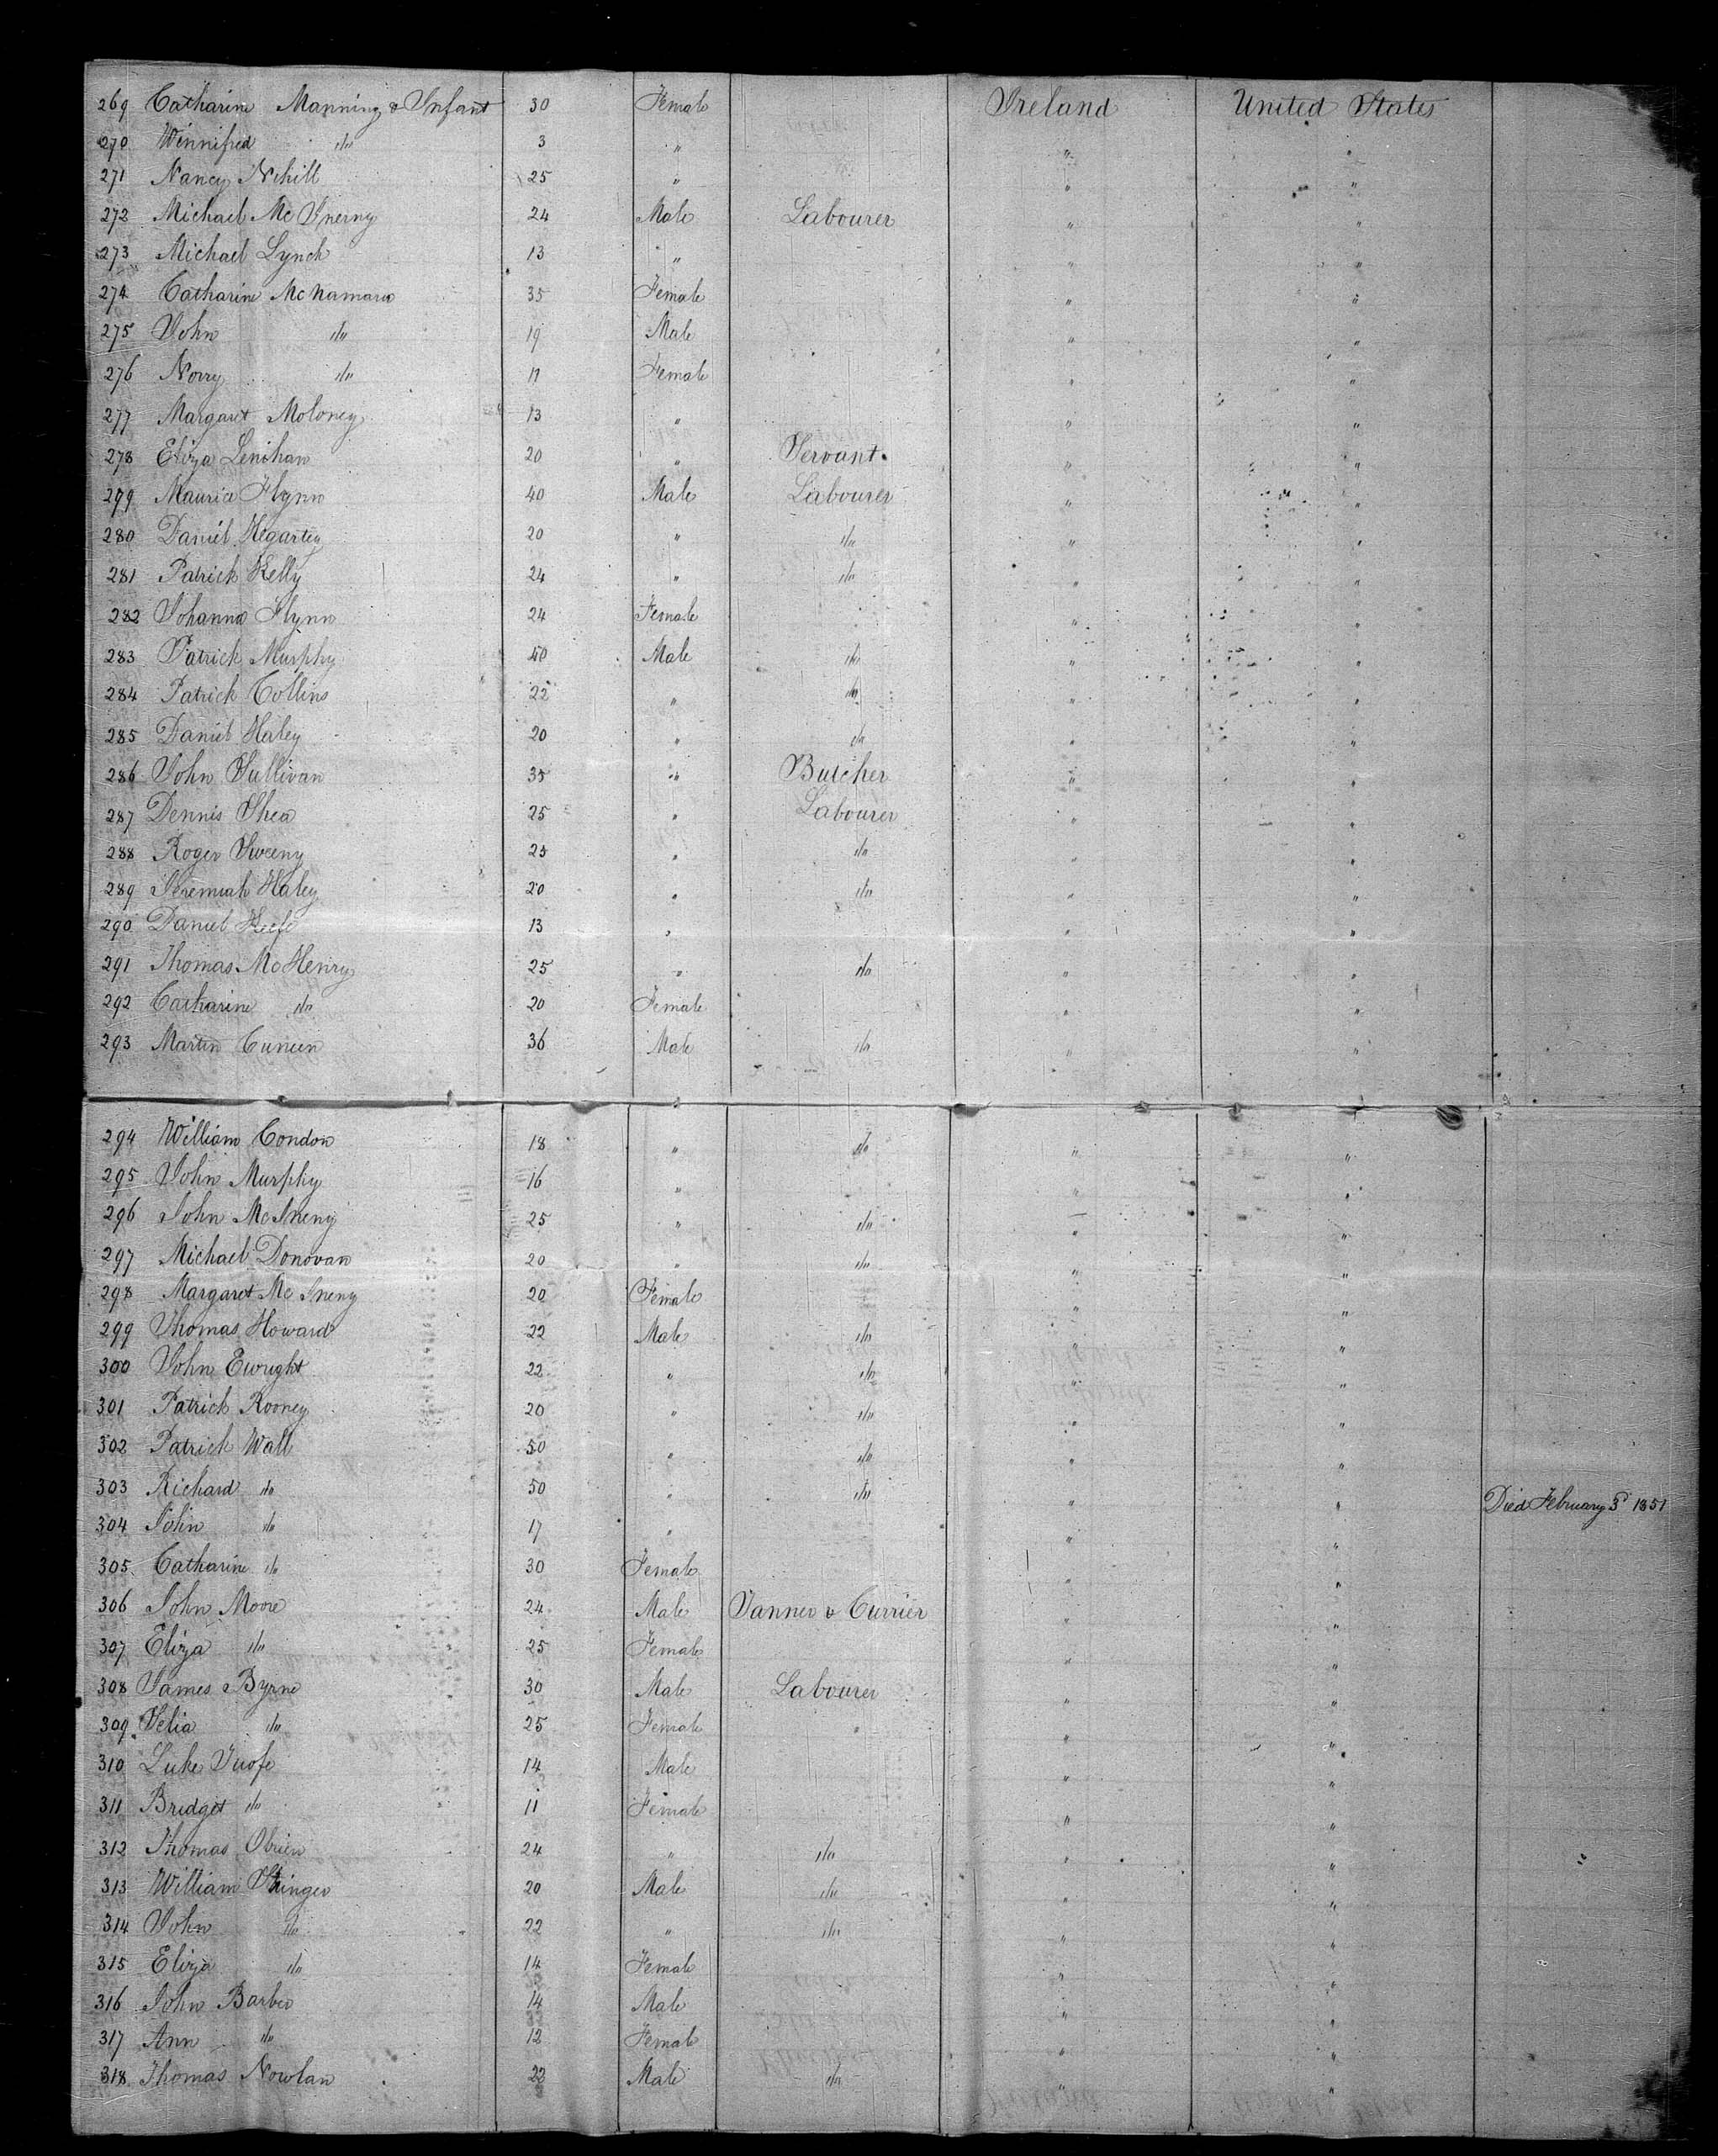 269 Catharine Manning & Infant 30 Female Ireland United States
270 Winnifred do 3 " " "
271 Nancy Nihill 25 " " "
272 Michael Mc Inerny 24 Male Labourer " "
273 Michael Lynch 13 " " "
274 Catharine McNamara 35 Female " "
275 John do 19 Male " "
276 Norry do 11 Female " "
277 Margaret Moloney 13 " " "
278 Eliza Lenihan 20 " Servant " "
279 Maurice Flynn 40 Male Labourer " "
280 Daniel Hegarty 20 " do " "
281 Patrick Kelly 24 " do " "
282 Johanna Flynn 24 Female " "
283 Patrick Murphy 40 Male do " "
284 Patrick Collins 22 " do " "
285 Daniel Haley 20 " do " "
286 John Sullivan 35 " Butcher " "
287 Dennis Shea 25 " Labourer " "
288 Roger Sweeny 25 " do " "
289 Jeremiah Haley 20 " do " "
290 Daniel Keefe 13 " " "
291 Thomas McHenry 25 " do " "
292 Catharine do 20 Female " "
293 Martin Cuneen 36 Male do " "
294 William Condon 18 " do " "
295 John Murphy 16 " " "
296 John McIneny 25 " do " "
297 Michael Donovan 20 " do " "
298 Margaret Mc Ineny 20 Female " "
299 Thomas Howard 22 Male do " "
300 John Ewright 22 " do " "
301 Patrick Rooney 20 " do " "
302 Patrick Wall 50 " do " "
303 Richard do 50 " do " " Died February 3d 1851
304 John do 17 " " "
305 Catharine do 30 Female " "
306 John Moore 24 Male Tanner & Currier " "
307 Eliza do 25 Female " "
308 James Byrne 30 Male Labourer " "
309 Selia do 25 Female " " "
310 Luke 14 Male " "
311 Bridget do 11 Female " "
312 Thomas Obrien 24 " do " "
313 William Stringer 20 Male do " "
314 John do 22 " do " "
315 Eliza do 14 Female " "
316 John Barber 14 Male " "
317 Ann do 12 Female " "
318 Thomas Nowlan 22 Male do " "